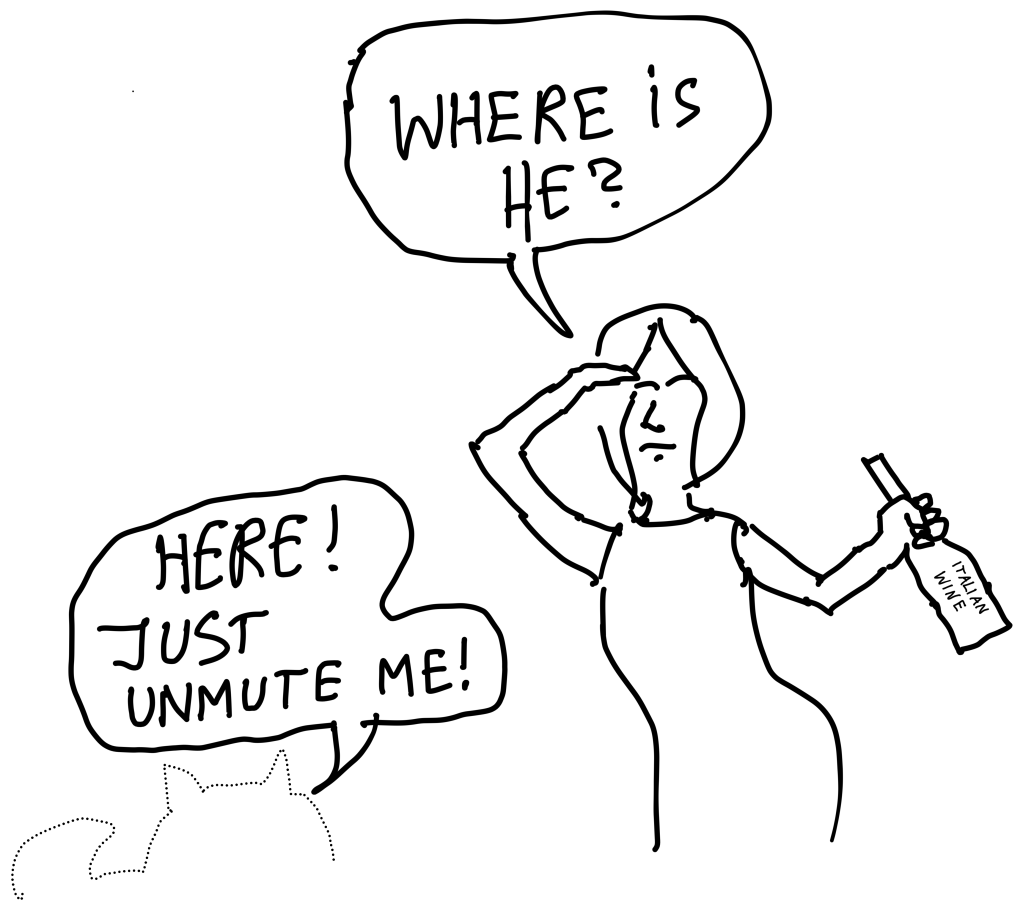 WHERE iS
HE?
HERE!
JUST
UNMUTE ME!
ITALIAN
WINE